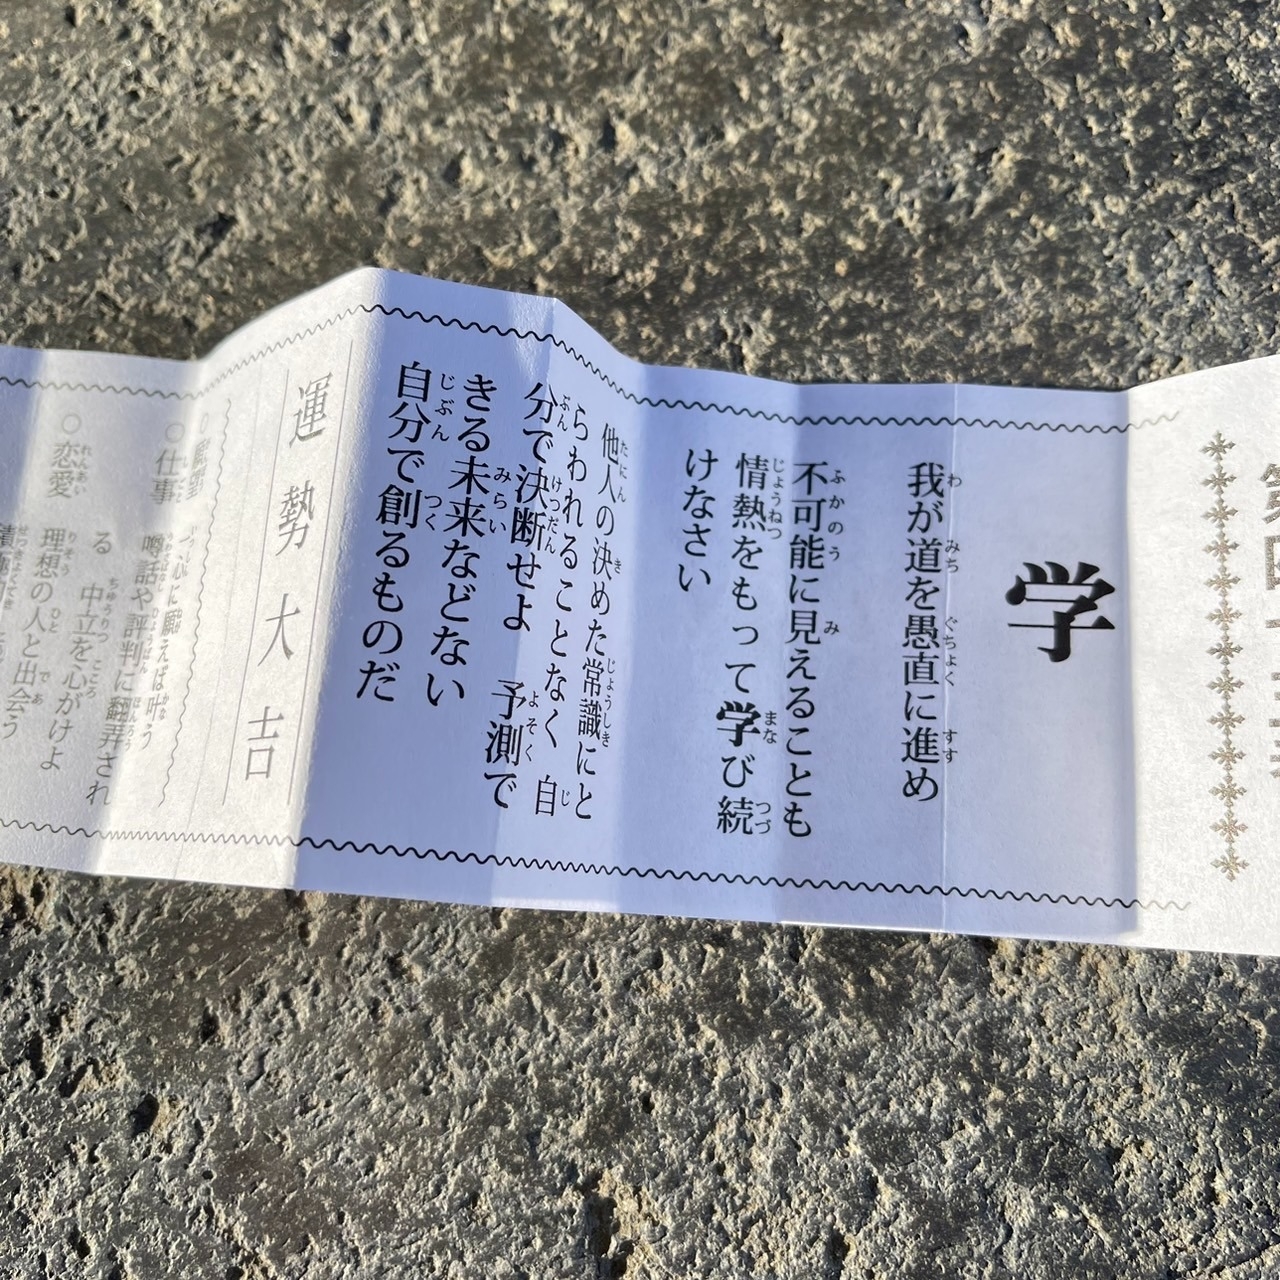 学
我が道を愚直に進め
不可能に見えることも
情熱をもって学び続
けなさい
他人の決めた常識にと
らわれることなく 自
分で決断せよ 予測で
きる未来などない
自分で創るものだ
運勢大吉
○仕事 噂話や評判に翻弄され
る 中立を心がけよ
○恋愛 理想の人と出会う